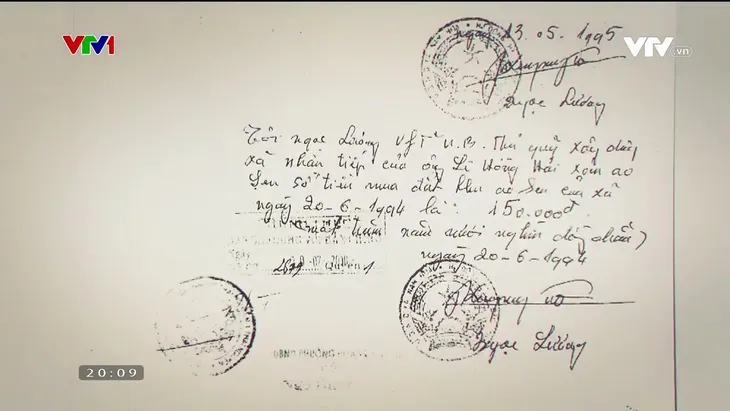 VTV1
VTV.vn
ngày 13.05.1995
Ngọc Lương
Tôi ngọc Lương U.B. Thủ quỹ xây dựng
xã nhận tiếp của ông Lê Hồng Hải xóm ao
Sen số tiền mua đất khu ao Sen của xã
ngày 20-6-1994 là: 150.000đ
một trăm năm mươi nghìn đồng chẵn)
ngày 20-6-1994
2899 Quyển 1
Ngọc Lương
UBND PHƯỜNG
20:09